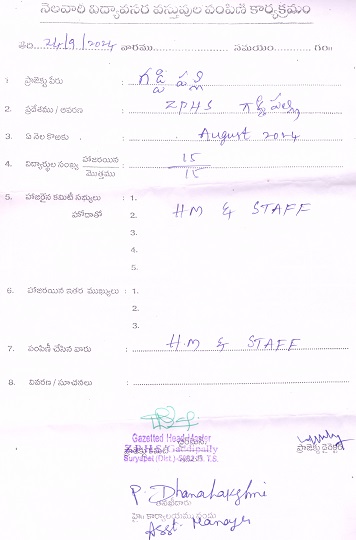 నెలవారి విద్యావసర వస్తువుల పంపిణి కార్యక్రమం
తేది. 24/9/2024 వారము............ సమయం............ గం॥
1. ప్రాజెక్టు పేరు : గడ్డి పల్లి
2. ప్రదేశము / ఆవరణ : ZPHS గడ్డిపల్లి
3. ఏ నెల కొరకు : August 2024
4. విద్యార్థుల సంఖ్య హాజరయిన : 15
మొత్తము 15
5. హాజరైన కమిటీ సభ్యులు : 1.
హోదాతో 2. HM & STAFF
3.
4.
5.
6. హాజరయిన ఇతర ముఖ్యులు : 1.
2.
3.
7. పంపిణీ చేసిన వారు : H.M & STAFF
8. వివరణ / సూచనలు :
Gazetted Headmaster
Z.P.H.S. Gaddipally
Suryapet (Dist.)
ప్రాజెక్టు డైరెక్టర్
P. Dhanalakshmi
Asst. Manager